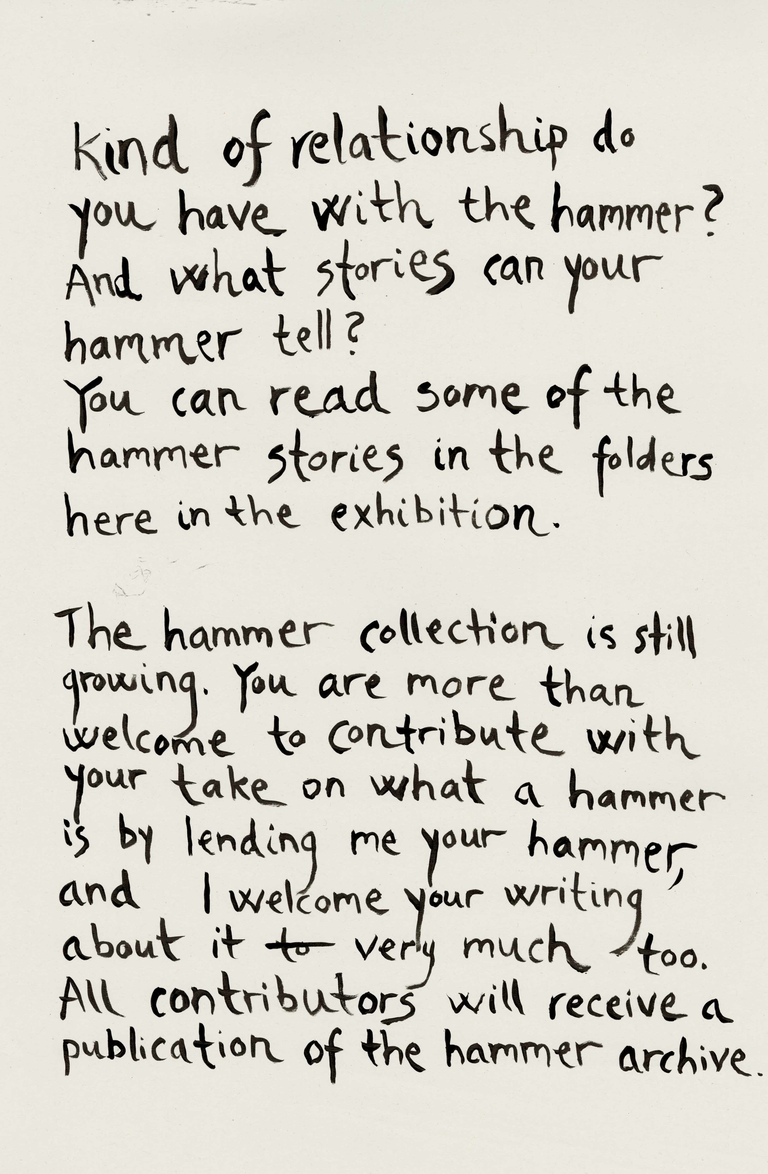 kind of relationship do
you have with the hammer?
And what stories can your
hammer tell?
You can read some of the
hammer stories in the folders
here in the exhibition.
The hammer collection is still
growing. You are more than
welcome to contribute with
your take on what a hammer
is by lending me your hammer,
and I welcome your writing
about it to very much too.
All contributors will receive a
publication of the hammer archive.